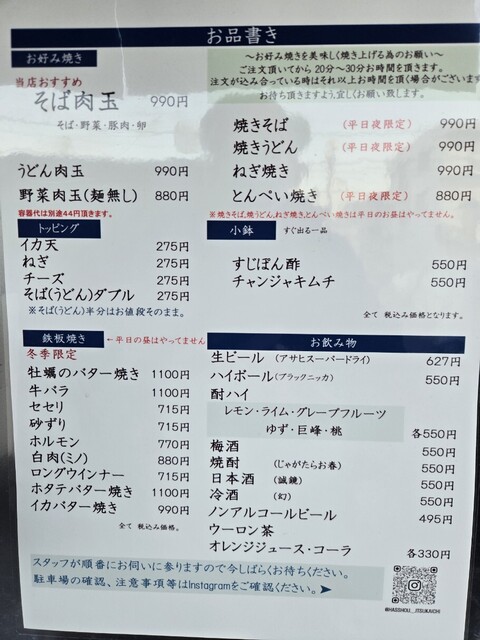 お品書き
お好み焼き
当店おすすめ
そば肉玉 990円
そば・野菜・豚肉・卵
うどん肉玉 990円
野菜肉玉(麺無し) 880円
容器代は別途44円頂きます。
〜お好み焼きを美味しく焼き上げる為のお願い〜
ご注文頂いてから20分〜30分お時間を頂きます。
注文が込み合っている時はそれ以上お時間を頂く場合がございます
お待ち頂きますよう、宜しくお願い致します。
焼きそば (平日夜限定) 990円
焼きうどん (平日夜限定) 990円
ねぎ焼き 990円
とんぺい焼き (平日夜限定) 880円
※焼きそば,焼うどん,ねぎ焼き,とんぺい焼きは平日のお昼はやってません。
トッピング
イカ天 275円
ねぎ 275円
チーズ 275円
そば(うどん)ダブル 275円
※そば(うどん)半分はお値段そのまま。
小鉢 すぐ出る一品
すじぽん酢 550円
チャンジャキムチ 550円
全て 税込み価格となります。
鉄板焼き ←平日の昼はやってません
冬季限定
牡蠣のバター焼き 1100円
牛バラ 1100円
セセリ 715円
砂ずり 715円
ホルモン 770円
白肉(ミノ) 880円
ロングウインナー 715円
ホタテバター焼き 1100円
イカバター焼き 990円
全て 税込み価格。
お飲み物
生ビール (アサヒスーパードライ) 627円
ハイボール(ブラックニッカ) 550円
酎ハイ
レモン・ライム・グレープフルーツ
ゆず・巨峰・桃 各550円
梅酒 550円
焼酎 (じゃがたらお春) 550円
日本酒 (誠鏡) 550円
冷酒 (幻) 550円
ノンアルコールビール 495円
ウーロン茶
オレンジジュース・コーラ 各330円
スタッフが順番にお伺いに参りますので今しばらくお待ちください。
駐車場の確認、注意事項等はInstagramをご確認ください。➤
@HASSHOU_ITSUKAICHI